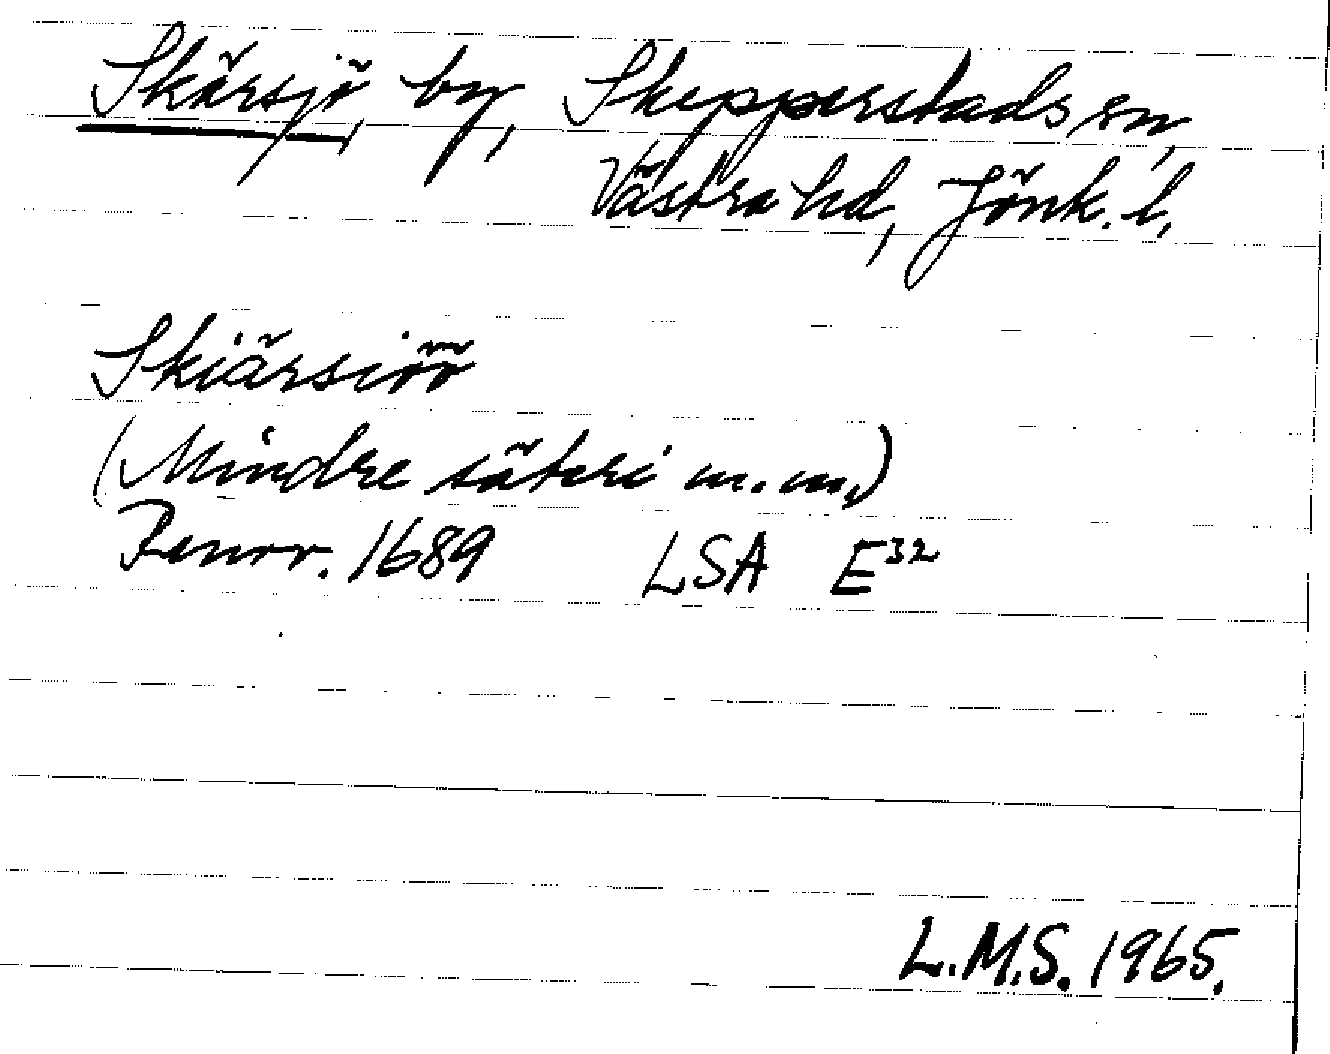 Skärsjö, by, Skepperstads sn,
Västra hd, Jönk. l.
Skiärsiöö
(Mindre säteri m.m.)
Renov. 1689 LSA E³²
L.M.S. 1965.